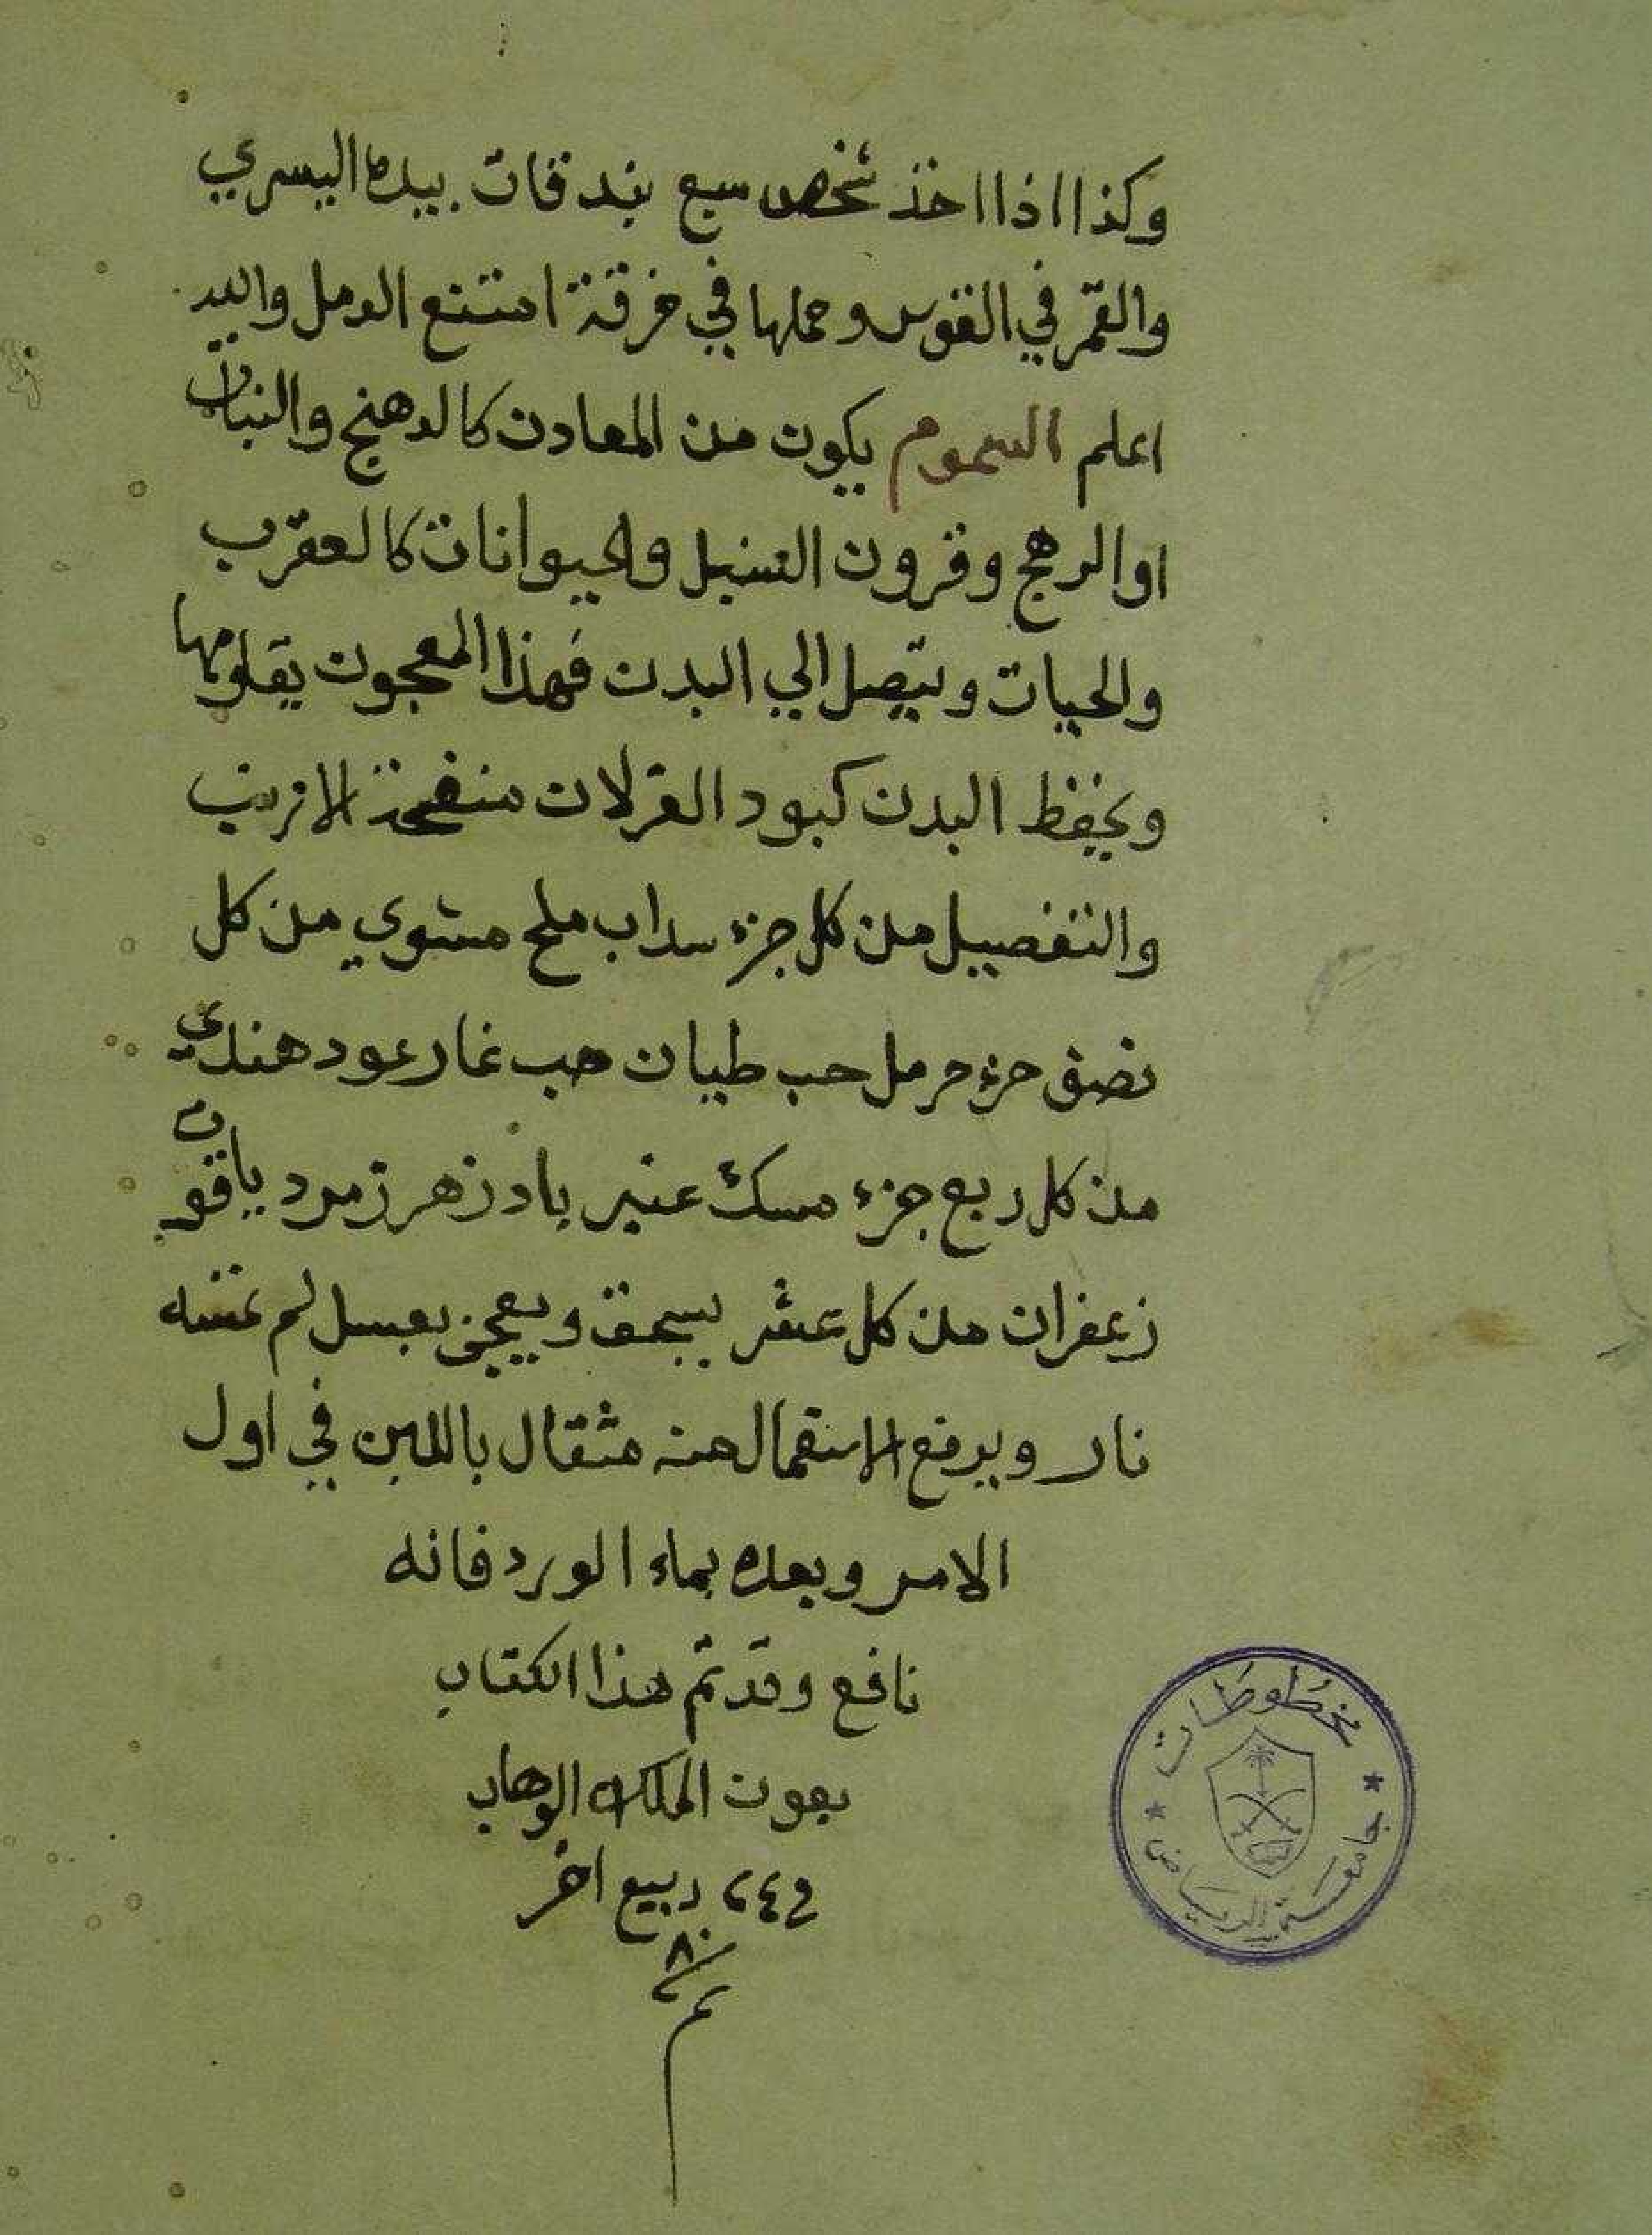 وكذا اذا اخذ شخص سبع بندقات بيده اليسري
والقمر في القوس وحملها في خرقة امتنع الدمل
اعلم السموم يكون من المعادن كالدهنج والنبات
او الرهج وقرون السنبل والحيوانات كالعقرب
والحيات ويتصل الي البدن فهذا المعجون يقاومها
ويحفظ البدن كبود منفحة الارنب
والتفصيل من كل جزء سداب ملح مشوي من كل
نصف جزء حرمل حب طيان حب غار عود هندي
من كل ربع جزء مسك عنبر بادزهر زمرد ياقوت
زعفران من كل عشر يسحق ويعجن بعسل لم تمسه
نار ويرفع الاستعمال منه مثقال باللبن في اول
الامر وبعده بماء الورد فانه
نافع وقد تم هذا الكتاب
بعون الملك الوهاب
ربيع اخر
تم
مخطوطات
جامعة الرياض